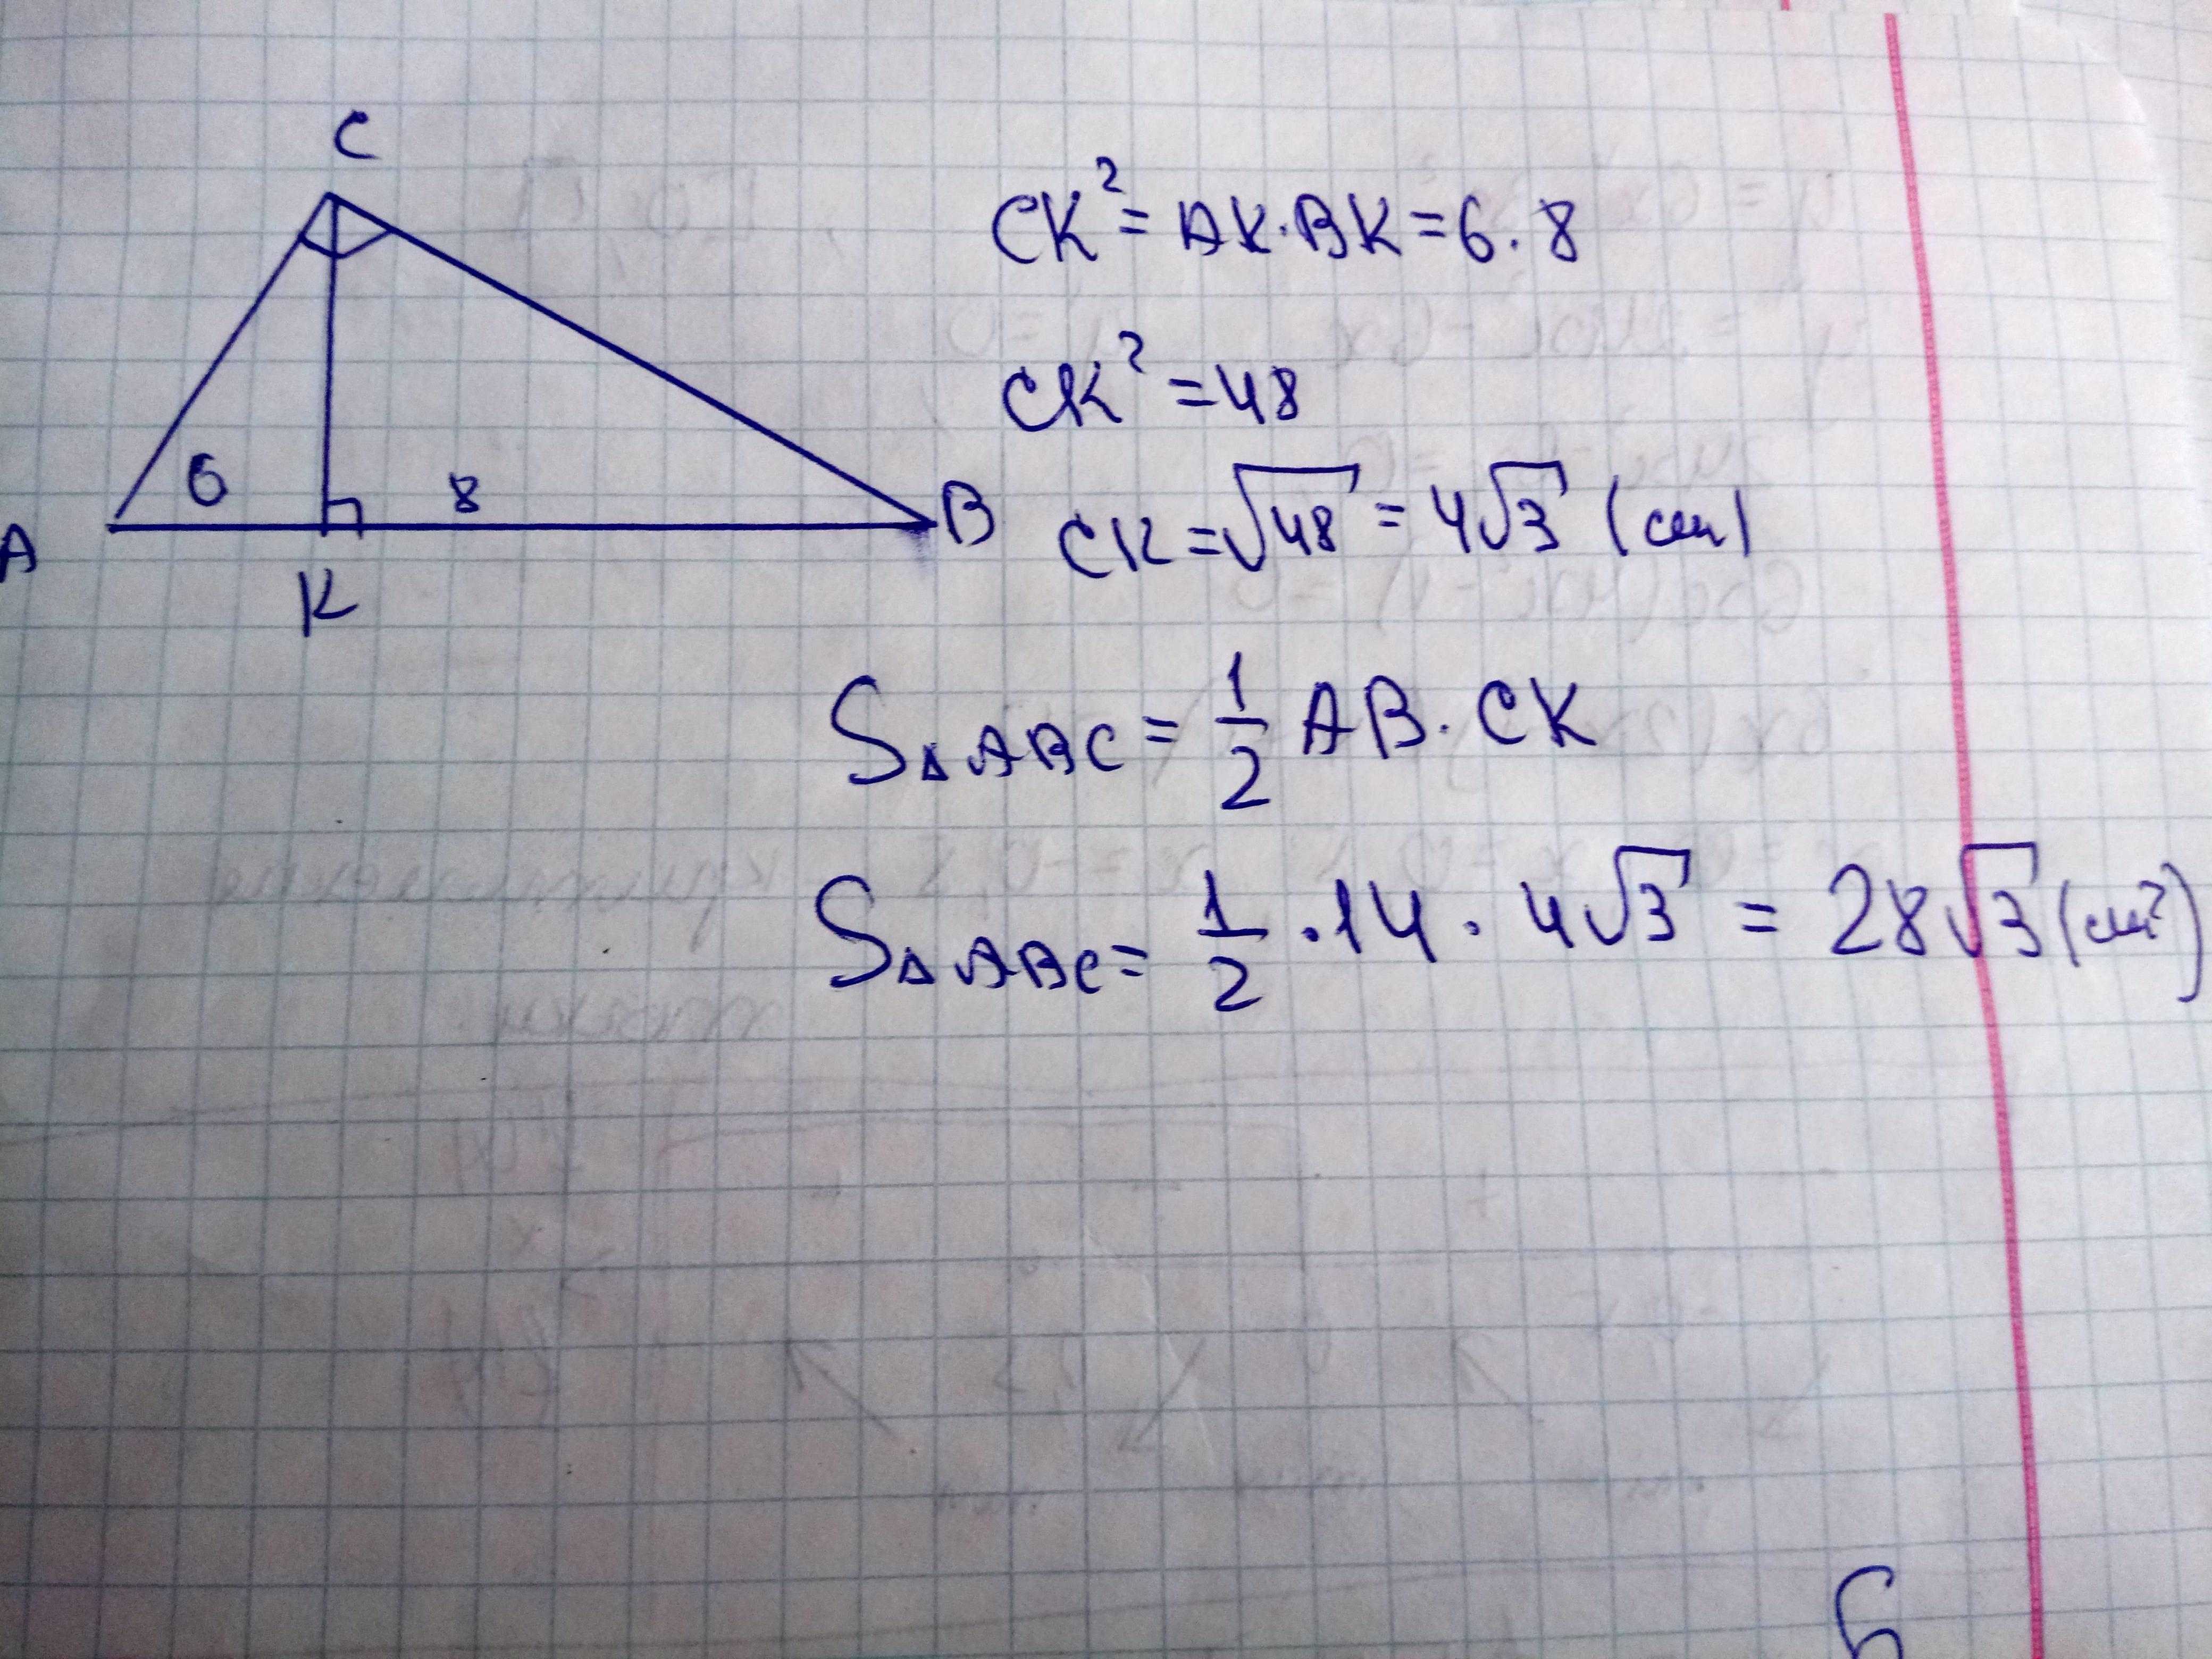 C
CK² = AK·BK = 6·8
CK² = 48
6
8
A
B
CK = √48 = 4√3 (см)
K
S△ABC = 1/2 AB·CK
S△ABC = 1/2 ·14 · 4√3 = 28√3 (см²)